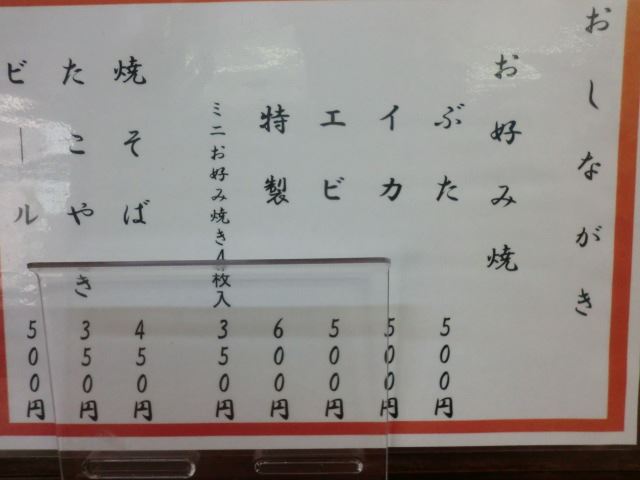 おしながき
お好み焼
ぶた 500円
イカ 500円
エビ 500円
特製 600円
ミニお好み焼き4枚入 350円
焼そば 450円
たこやき 350円
ビール 500円